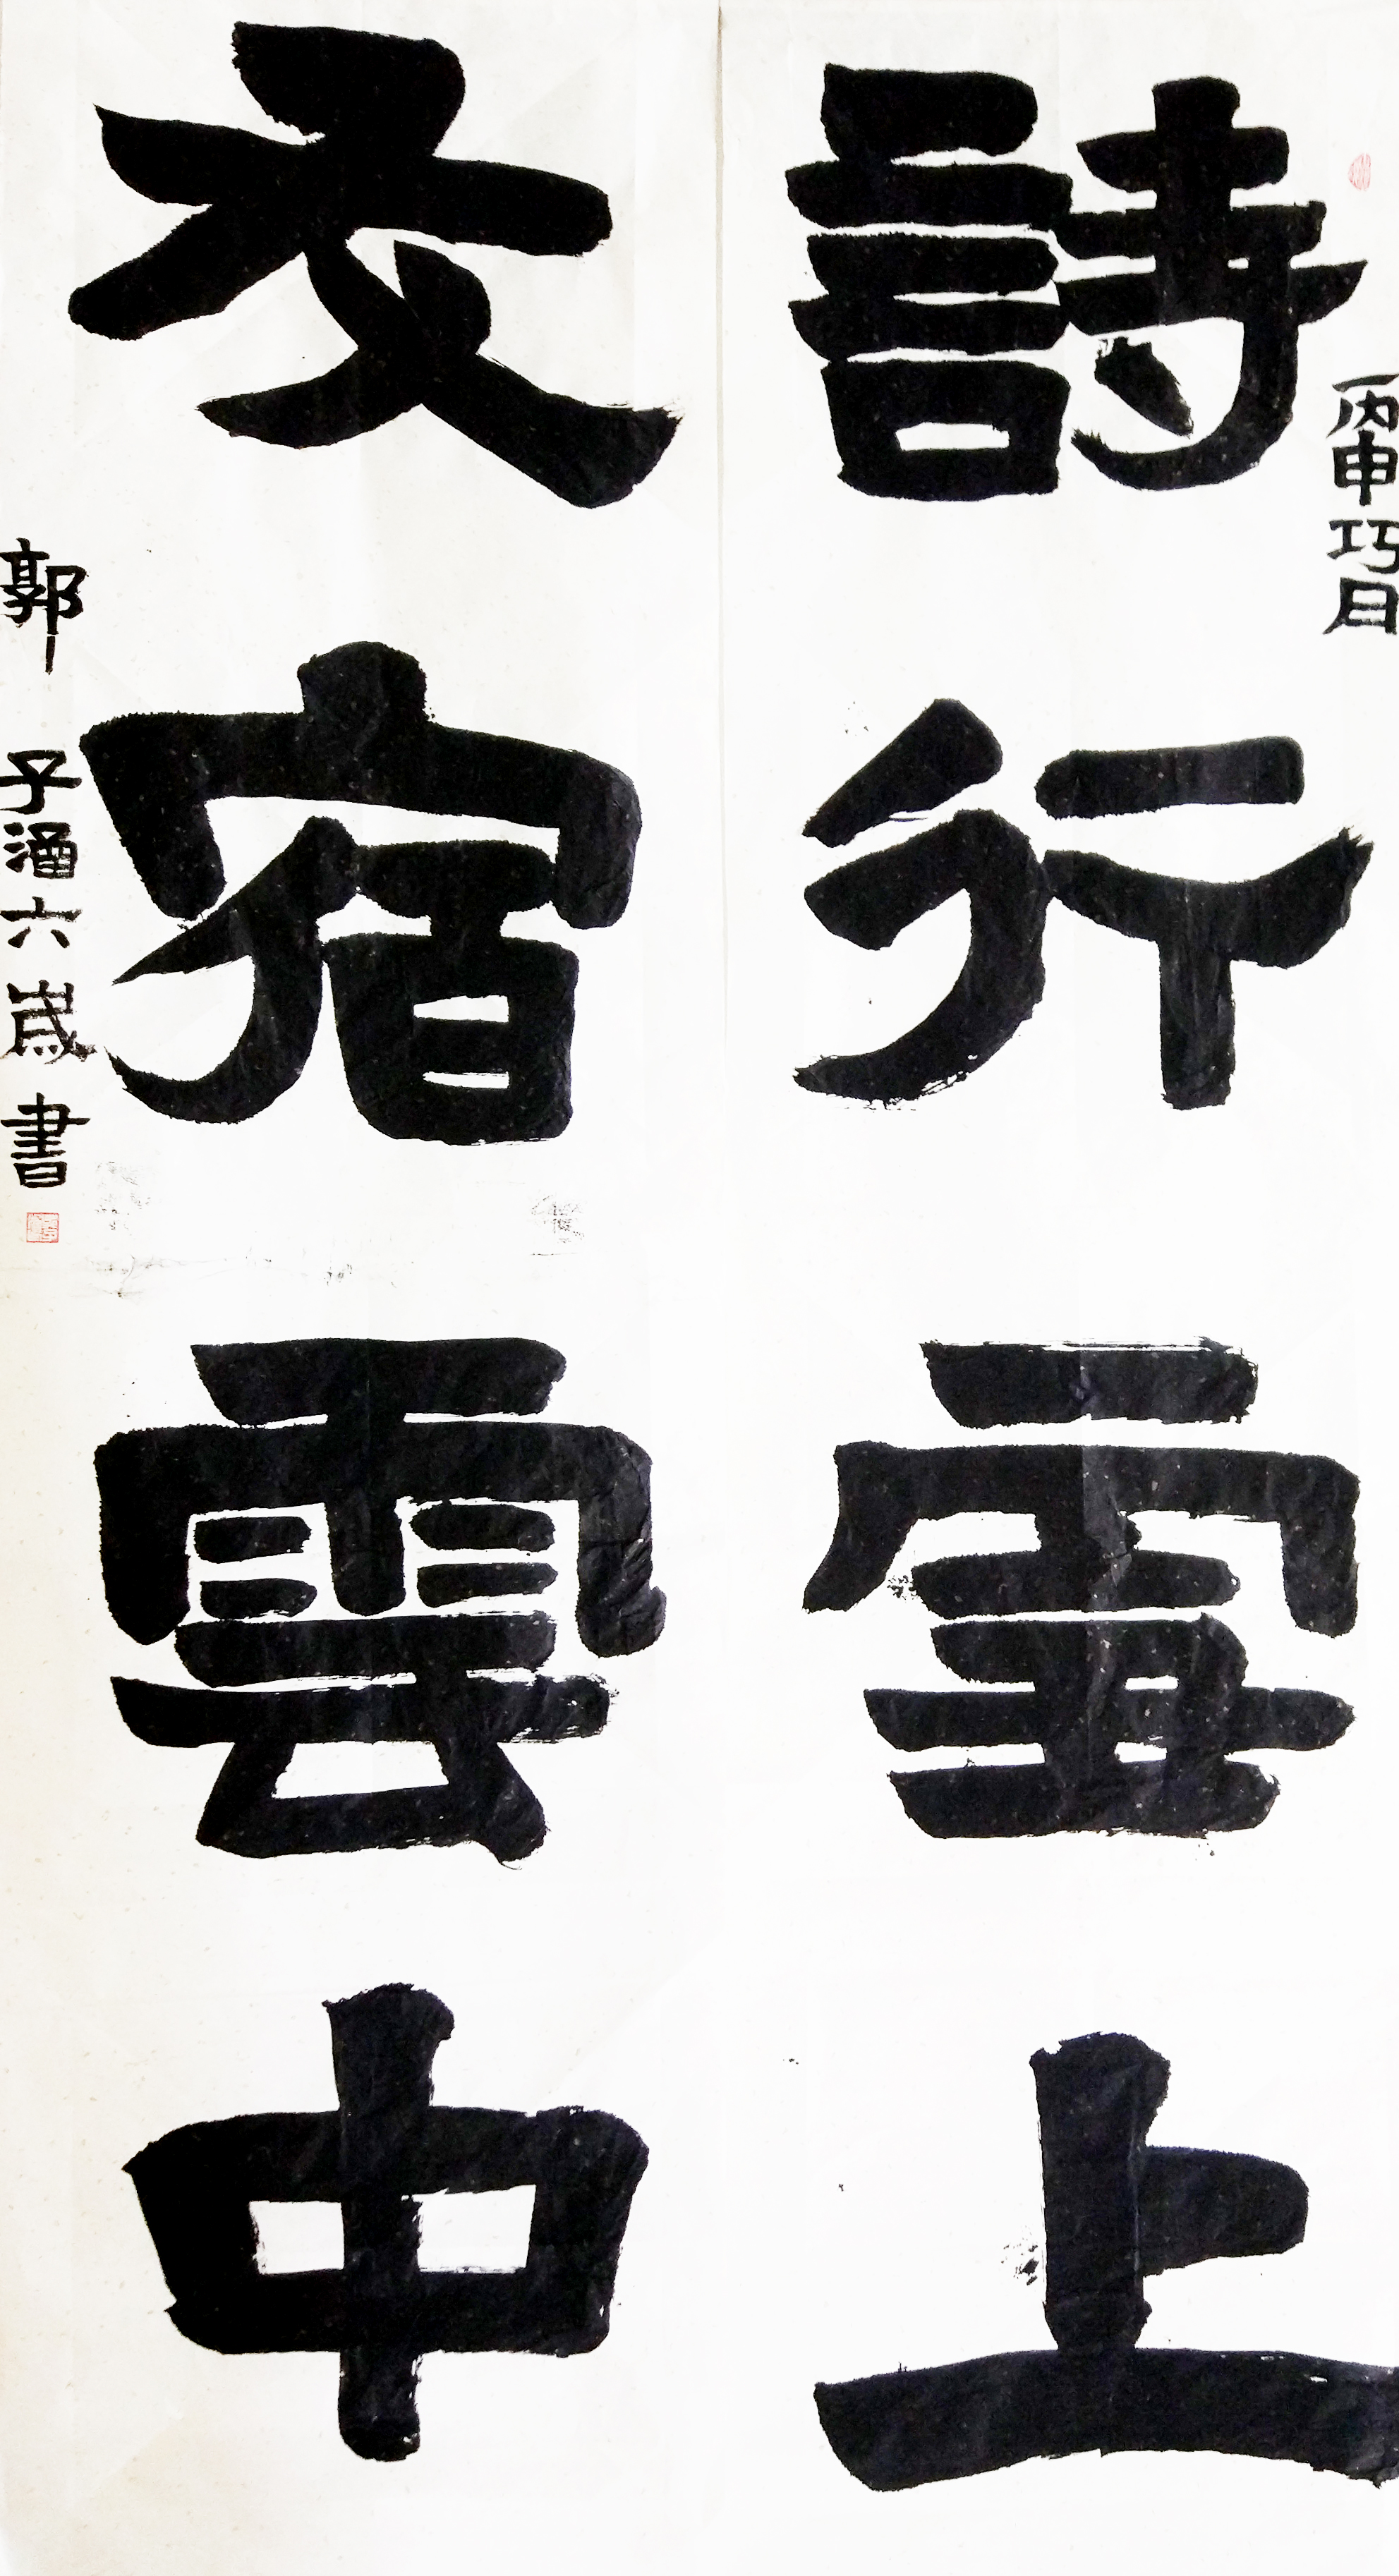 丙申巧月
詩行雪上
友宿雲中
郭子涵六歲書